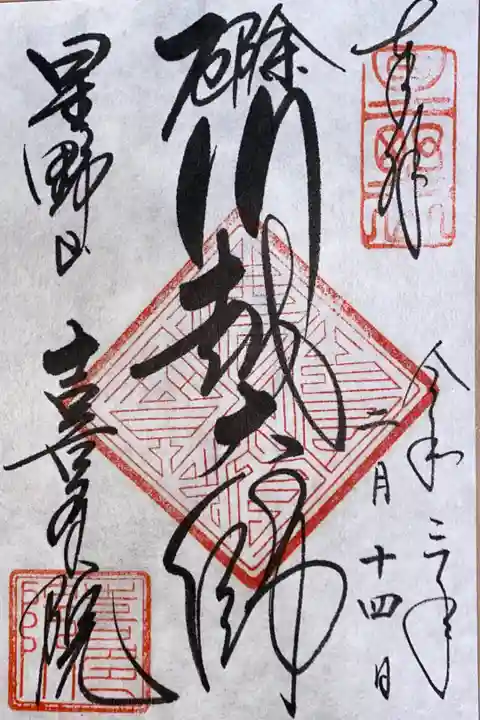 奉拝
令和三年
二月十四日
厄除
川越大師
星野山
喜多院